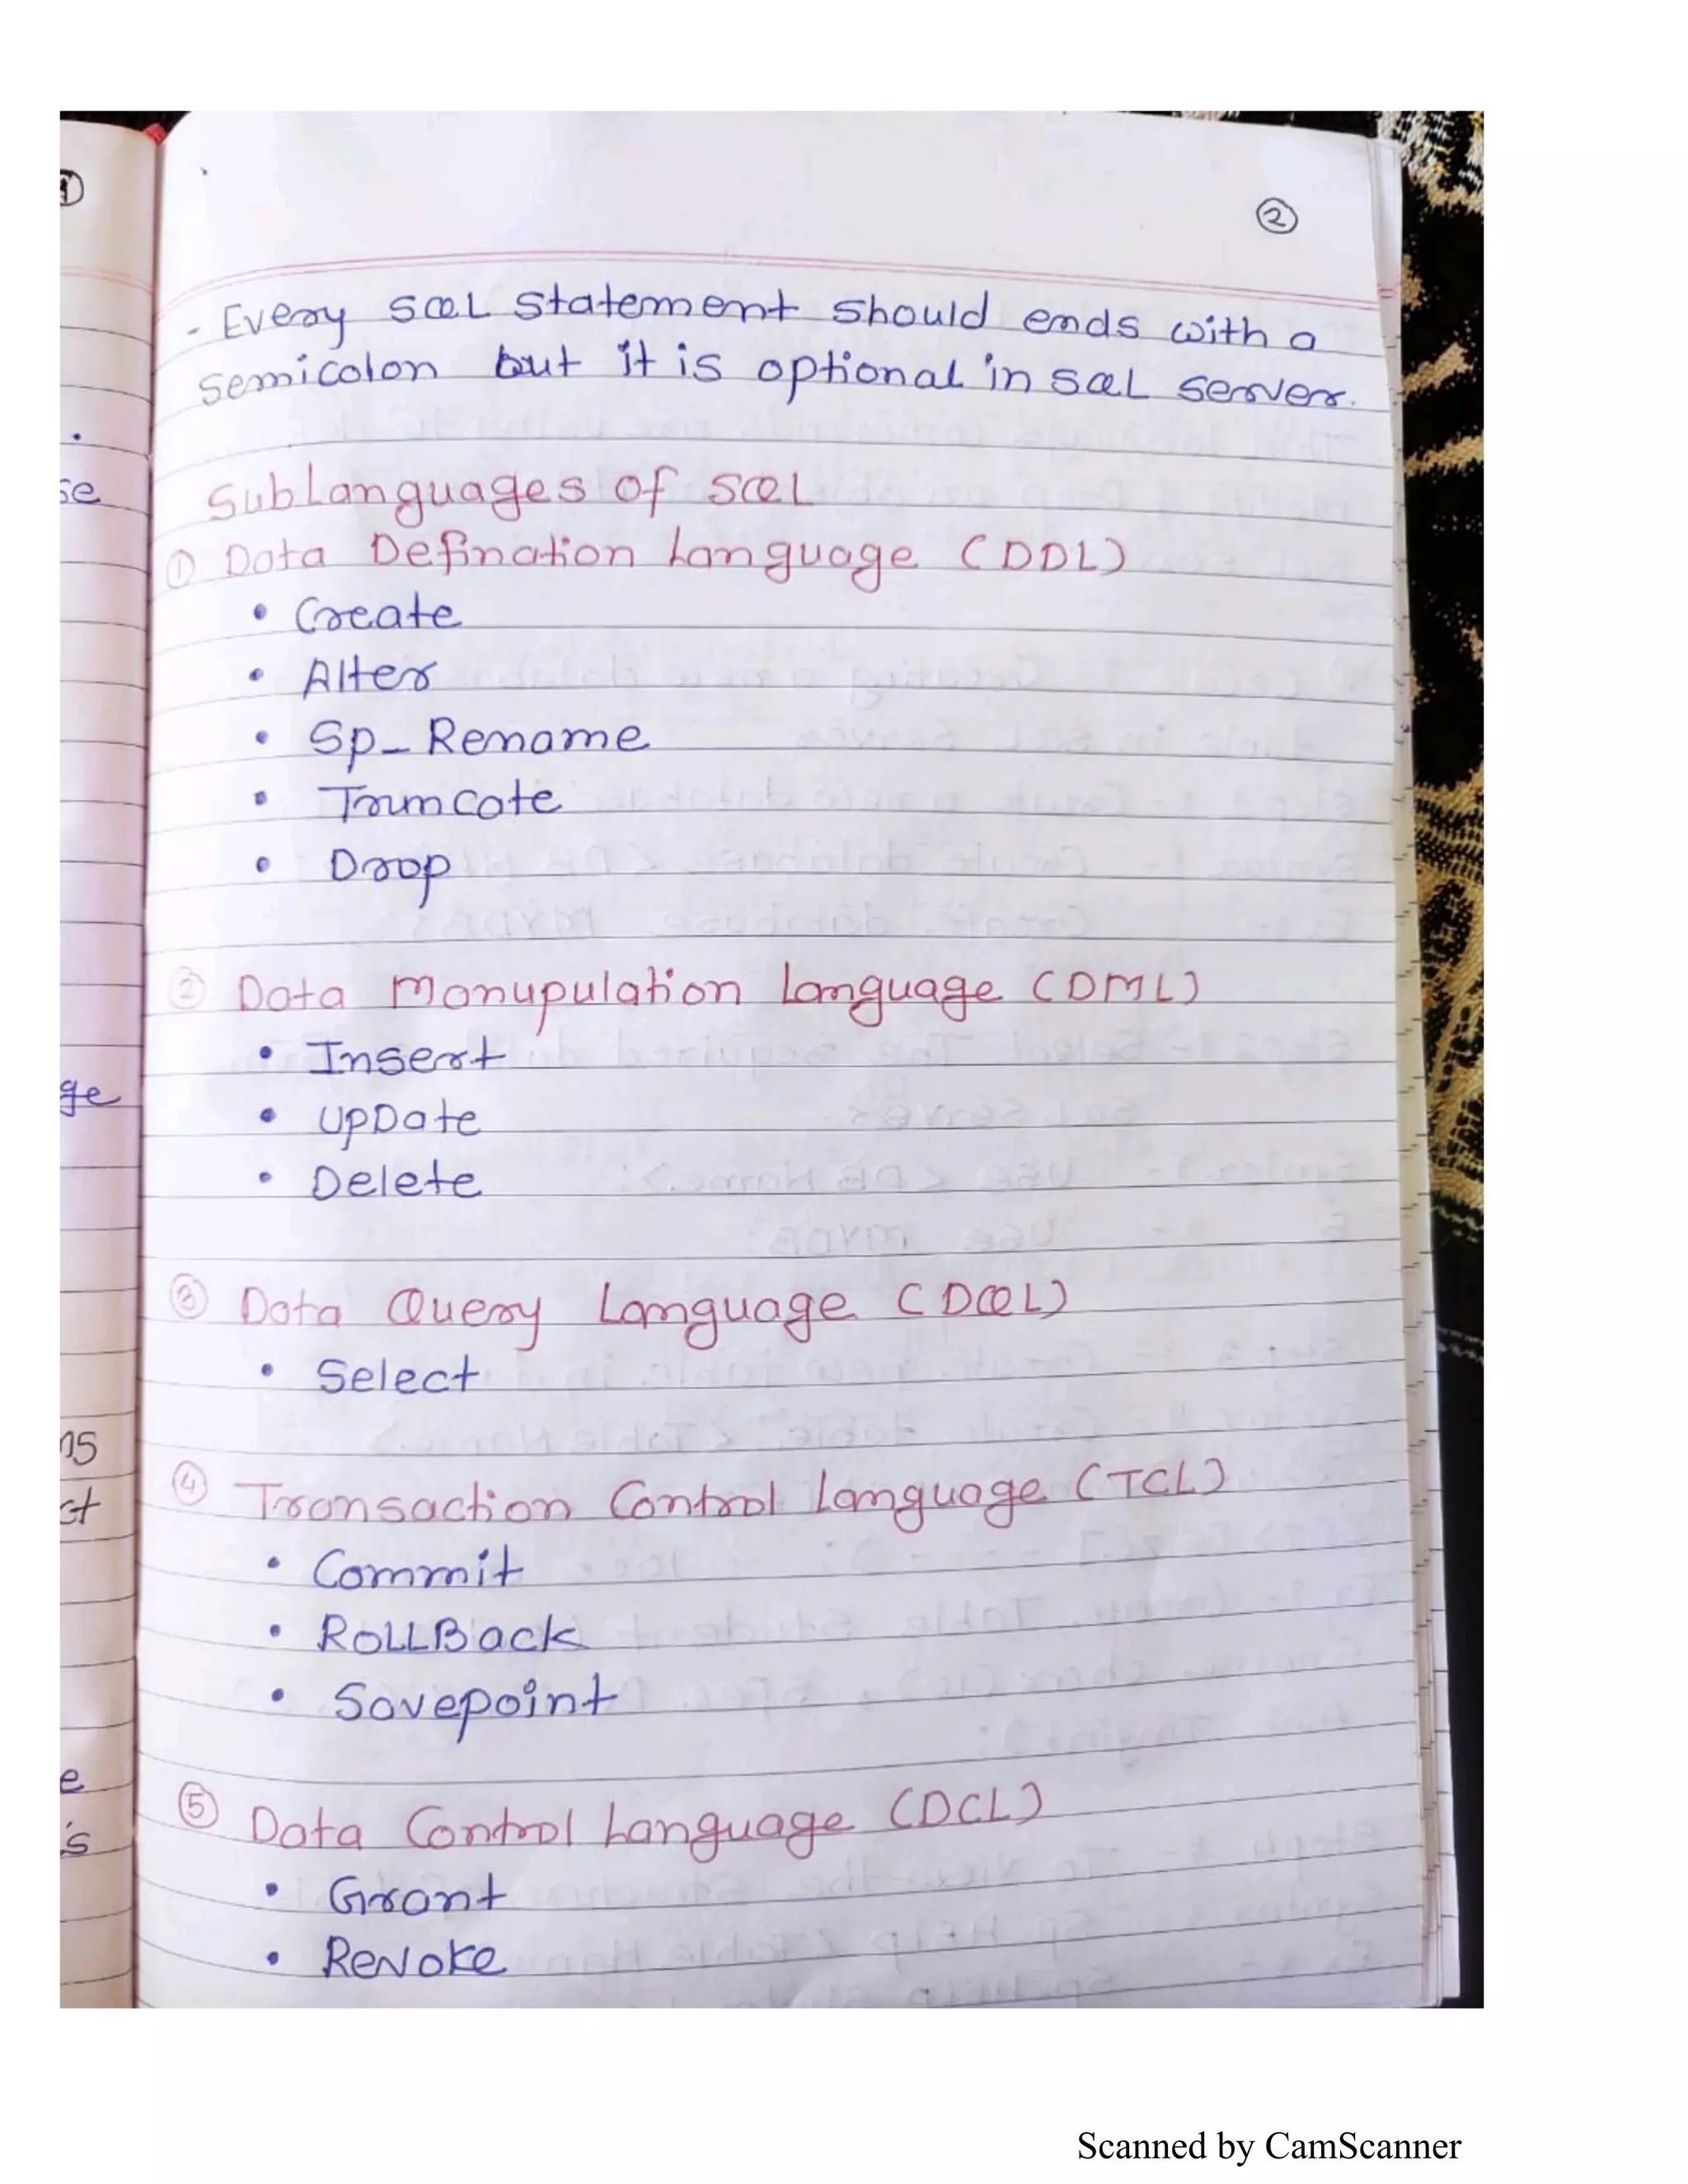 ②
- Every SQL Statement should ends with a
semicolon but it is optional in SQL server.
SubLanguages of SQL
① Data Defination Language (DDL)
• Create
• Alter
• Sp_Rename
• Truncate
• Drop
② Data Manupulation Language (DML)
• Insert
• UpDate
• Delete
③ Data Query Language (DQL)
• Select
④ Transaction Control Language (TCL)
• Commit
• RoLLBack
• Savepoint
⑤ Data Control Language (DCL)
• Grant
• Revoke
Scanned by CamScanner